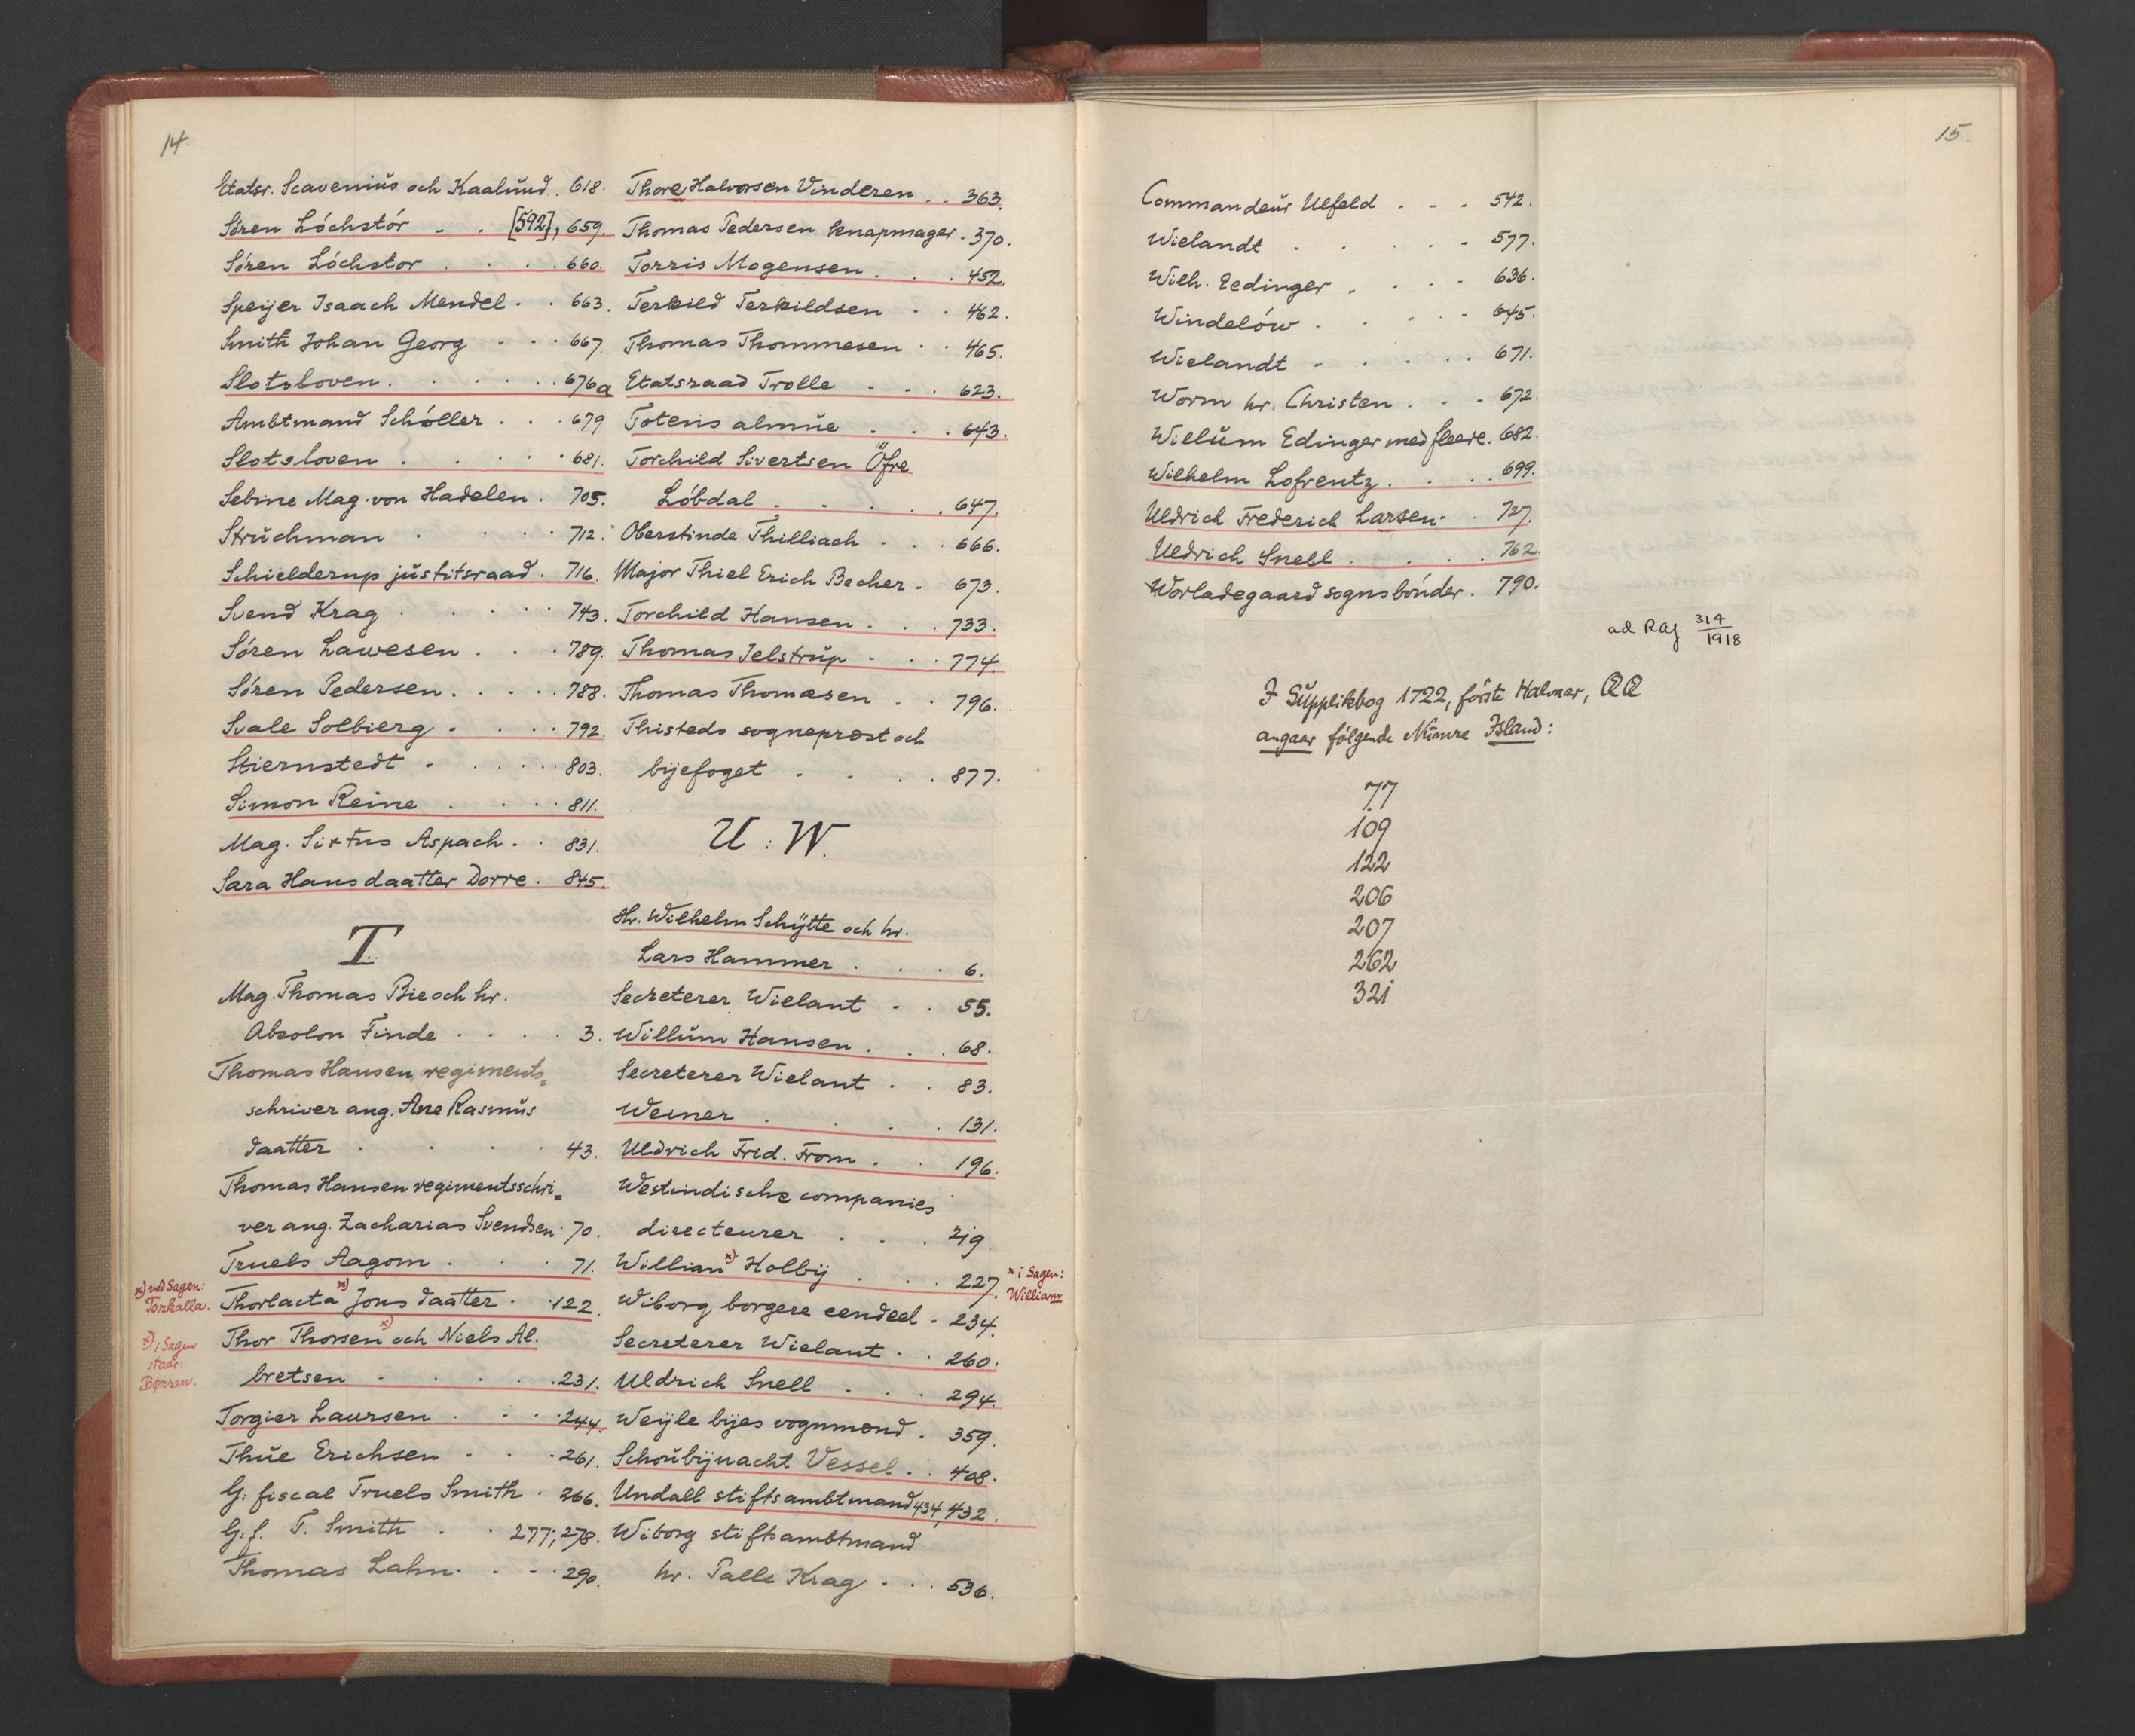 14.
Etatsr. Scavenius och Kaalund . 618.
Søren Lóchstór . . [592], 659.
Sóren Lóchstor . . . . 660.
Speijer Isaach Mendel . . 663.
Smith Johan Georg . . . 667.
Slotsloven . . . . . . 676a
Ambtmand Schóller . . . 679
Slotsloven . . . . . 681.
Sebine Mag. von Hadelen . 705.
Struchman . . . . 712.
Schielderup justitsraad . 716.
Svend Krag . . . . . 743.
Sóren Lawesen . . . 789.
Sóren Pedersen . . . . . 788.
Svale Solbierg . . . . 792.
Stiernstedt . . . . . 803.
Simon Reine . . . . 811.
Mag. Sixtus Aspach . . 831.
Sara Hansdaatter Dorre . 845.
T.
Mag. Thomas Bie och hr.
Absolon Finde . . . . 3.
Thomas Hansen regiments=
schriver ang. Ane Rasmus
daatter . . . . 43.
Thomas Hansen regimentsschri=
ver ang. Zacharias Svendsen . 70.
Truels Aagom . . . 71.
x) ved Sagen:
Torkalla.
Thorlacta x) Jons daatter . . 122.
Thor Thorsen x) och Niels Al.
x) i Sagen
staar:
Børzen.
bretsen . . . . . 231.
Torgier Laursen . . . 244.
Thue Erichsen . . . 261.
G: fiscal Truels Smith . 266.
G. f. T. Smith . . 277; 278.
Thomas Lahn . . . 290.
Thore Halvorsen Vinderen . . 363.
Thomas Pedersen knapmager . 370.
Torris Mogensen . . . 452.
Terkild Terkildsen . . 462.
Thomas Thommesen . . 465.
Etatsraad Trolle . . . 623.
Totens almue . . . 643.
Torchild Sivertsen Öfre
Lóbdal . . . . . 647.
Oberstinde Thilliach . . . 666.
Major Thiel Erich Becher . 673.
Torchild Hansen . . . 733.
Thomas Jelstrup . . . 774.
Thomas Thomæsen . . 796.
Thisteds sogneprest och
bijefoget . . . . 877.
U: W.
Hr. Wilhelm Schÿtte och hr.
Lars Hammer . . . 6.
Secreterer Wielant . . 55.
Willum Hansen . . . 68.
Secreterer Wielant . . 83.
Weiner . . . . 131.
Uldrich Frid. From . . 196.
Westindische companies
directeurer . . . 219.
Willian x) Holbij . . . 227.
x i Sagen:
William
Wiborg borgere eendeel . 234.
Secreterer Wielant . . 260.
Uldrich Snell . . . 294.
Weijle bijes vognmend . 359.
Schoubijnacht Vessel . . 408.
Undall stiftsambtmand 434, 432.
Wiborg stiftsambtmand
hr. Palle Krag . . . 536.
15.
Commandeur Ulfeld . . . 542.
Wielandt . . . . . 577.
Wilh. Eedinger . . . . 636.
Windelów . . . . . 645.
Wielandt . . . . . 671.
Worm hr. Christen . . . 672.
Wielum Edinger med fleere . 682.
Wilhelm Lofrentz . . . . 699.
Uldrich Frederich Larsen . . 727.
Uldrich Snell . . . . 762.
Worladegaard sognsbónder . 790.
ad RAJ 314/1918
I Supplikbog 1722, förste Halvaar, QQ
angaar følgende Numre Island:
77
109
122
206
207
262
321